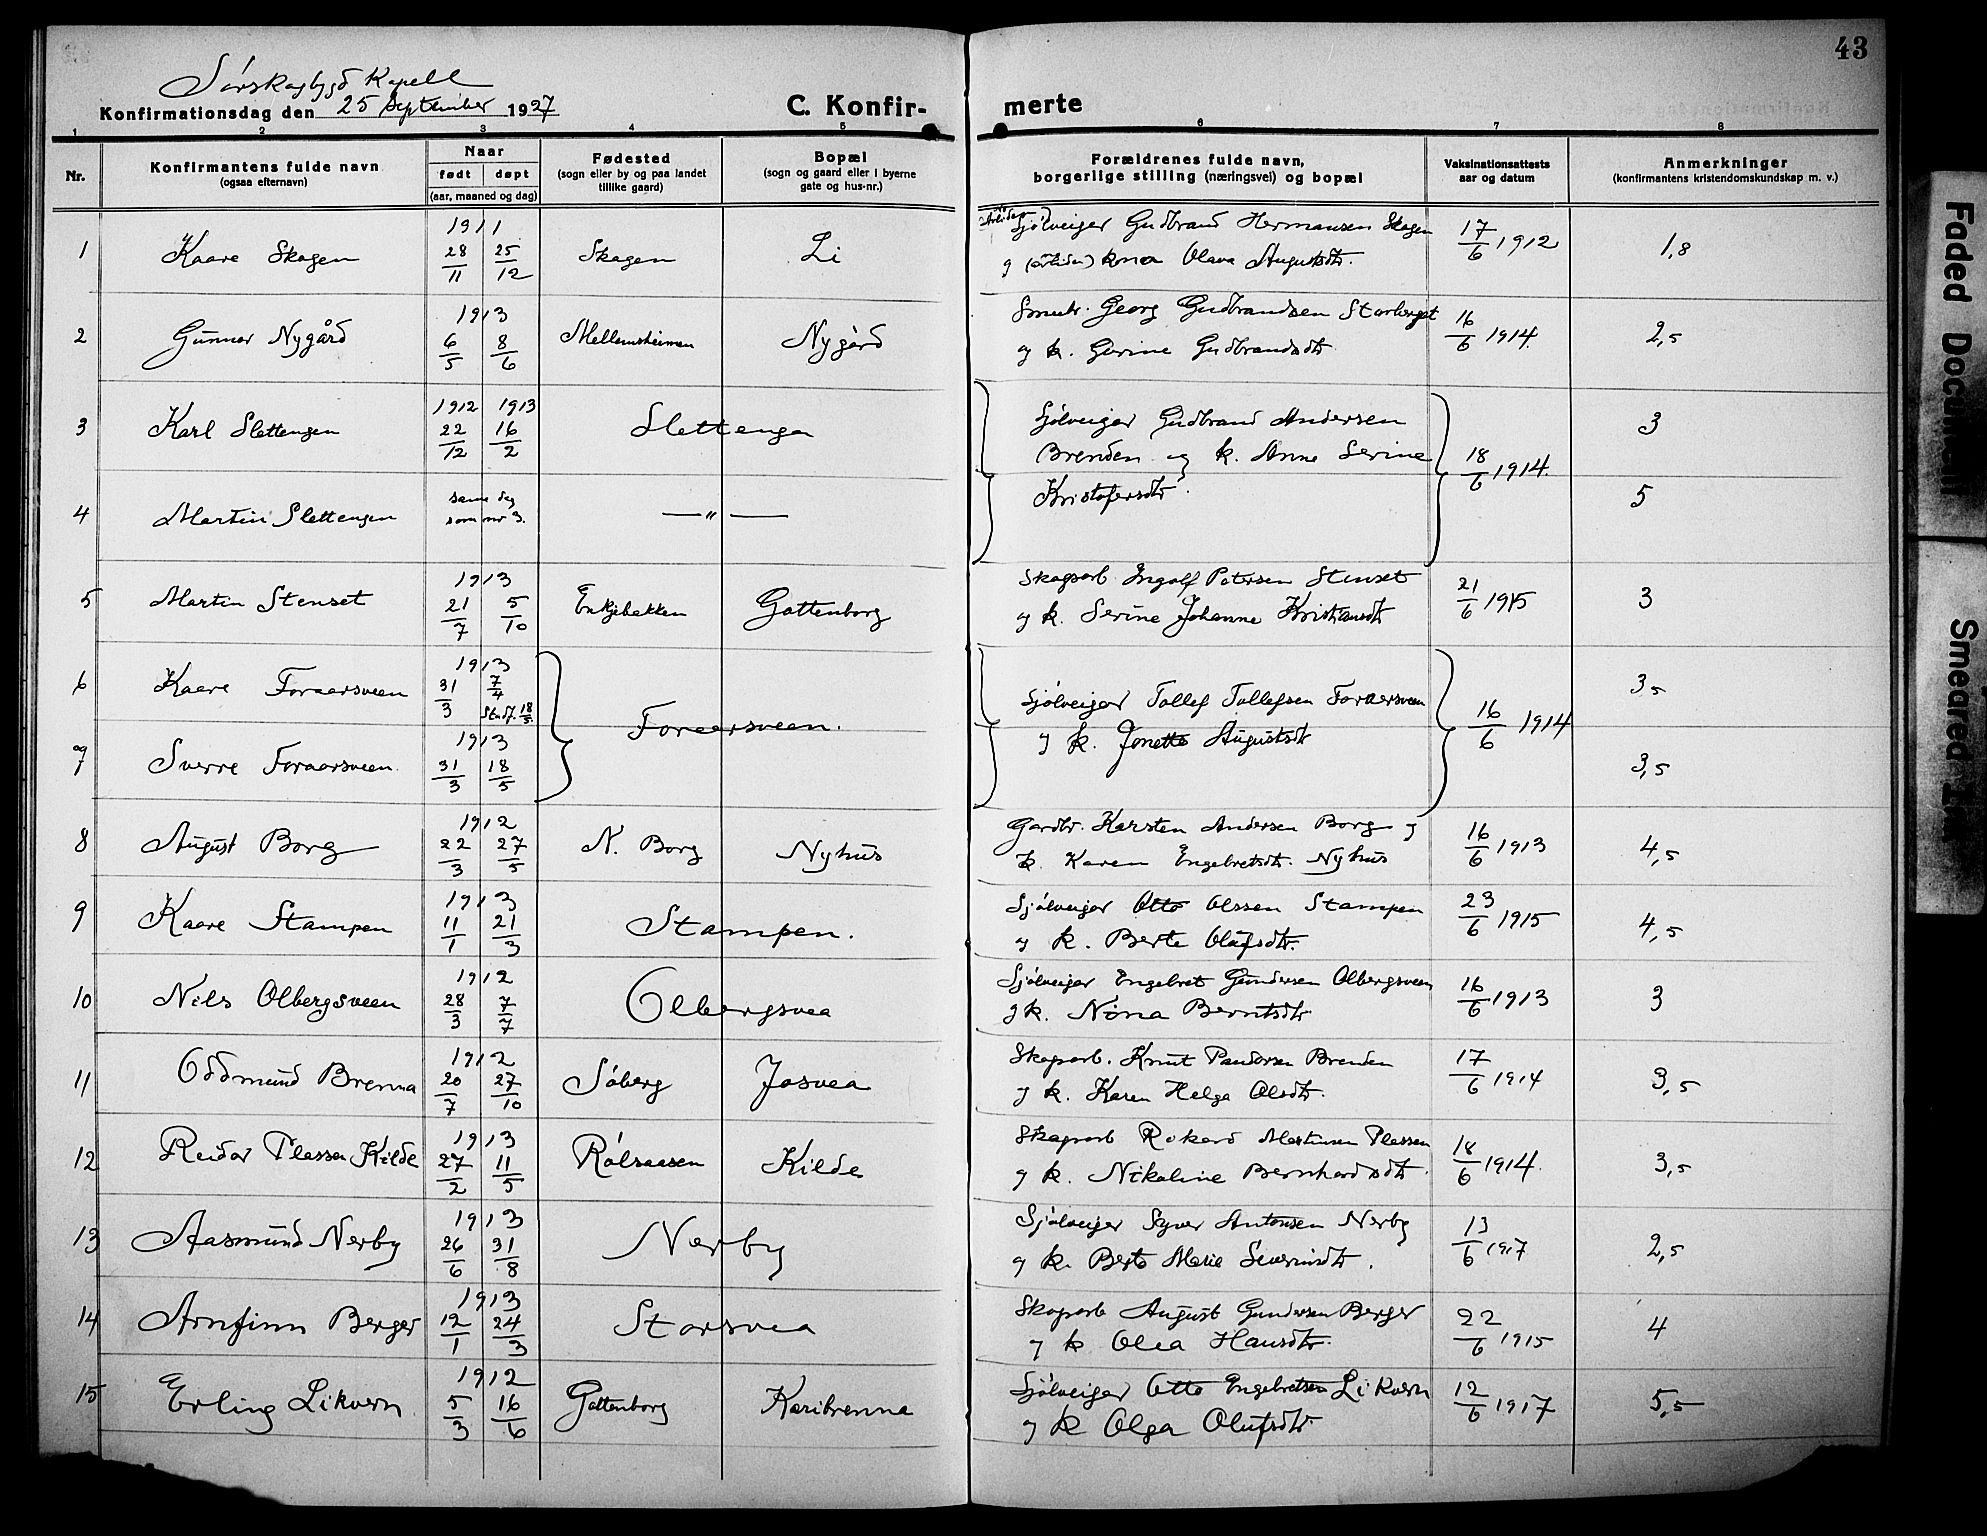 43
Sørskogbygd Kapell
Konfirmationsdag den 25 september 1927
C. Konfir-merte
1 2 3 4 5 6 7 8
Nr.
Konfirmantens fulde navn
(ogsaa efternavn)
Naar
født døpt
(aar, maaned og dag)
Fødested
(sogn eller by og paa landet
tillike gaard)
Bopæl
(sogn og gaard eller i byerne
gate og hus-nr.)
Forældrenes fulde navn,
borgerlige stilling (næringsvei) og bopæl
Vaksinationsattests
aar og datum
Anmerkninger
(konfirmantens kristendomskundskap m. v.)
1 Kaare Skogen 1911 28/11 25/12 Skogen Li
Sjølveiger Gudbrand Hermansen Skogen
g kona Olava Augustsdtr.
17/6 1912 1,8
2 Gunnar Nygård 1913 6/5 8/6 Nygård
Georg Gudbrandsen Storberget
g k. Gurine Gudbrandsdtr
16/6 1914. 2,5
3 Karl Slettengen 1912 22/12 1913 16/2 Slettenga
Sjølveiger Gudbrand Andersen
Brenden g k. Anne Serine
Kristofersdtr.
18/6 1914. 3
4 Martin Slettengen same dag
som nr 3. — " — 5
5 Martin Stenset 1913 21/7 5/10 Enkjebakken Gottenborg
Skogsarb Ingolf Petersen Stenset
g k. Serine Johanne Kristiansdtr
21/6 1915 3
6 Kaare Foraarsveen 1913 31/3 7/4 Stadf. 18/5 Foraarsveen.
Sjølveiger Tollef Tollefsen Foraarsveen
g k. Jonette Augustsdtr
16/6 1914 3,5
7 Sverre Foraarsveen 1913 31/3 18/5 3,5
8 August Borg 1912 22/3 27/5 N. Borg Nyhus
Gardbr. Karsten Andersen Borg g
k. Karen Engebretsdtr. Nyhus
16/6 1913 4,5
9 Kaare Stampen 1913 11/1 21/3 Stampen.
Sjølveiger Otto Olssen Stampen
g k. Berte Olufsdtr.
23/6 1915 4,5
10 Nils Olbergsveen 1912 28/3 7/7 Olbergsvea
Sjølveiger Engebret Gundersen Olbergsveen
g k. Nina Berntsdtr
16/6 1913 3
11 Oddmund Brenna 1912 20/7 27/10 Søberg Josvea
Skogsarb. Knut Brenden
g k. Karen Helga Olsdtr.
17/6 1914 3,5
12 Reidar Plassen Kilde 1913 27/2 11/5 Rølsaasen Kilde
Skogsarb Rikard Martinsen Plassen
g k. Nikoline Bernhardsdtr
18/6 1914. 3,5
13 Aasmund Nerby 1913 26/6 31/8 Nerby
Sjølveiger Syver Antonsen Nerby
g k. Berte Marie Severinsdtr.
13/6 1917 2,5
14 Arnfinn Berger 1913 12/1 24/3 Storsvea
Skogsarb August Gundersen Berger
g k Olea Hansdtr.
22/6 1915 4
15 Erling Likvern 1912 5/3 16/6 Gottenborg Karibrenna
Sjølveiger Otto Engebretsen Likvern
g k Olga Olufsdtr
12/6 1917 5,5
Faded Document
Smeared Ink